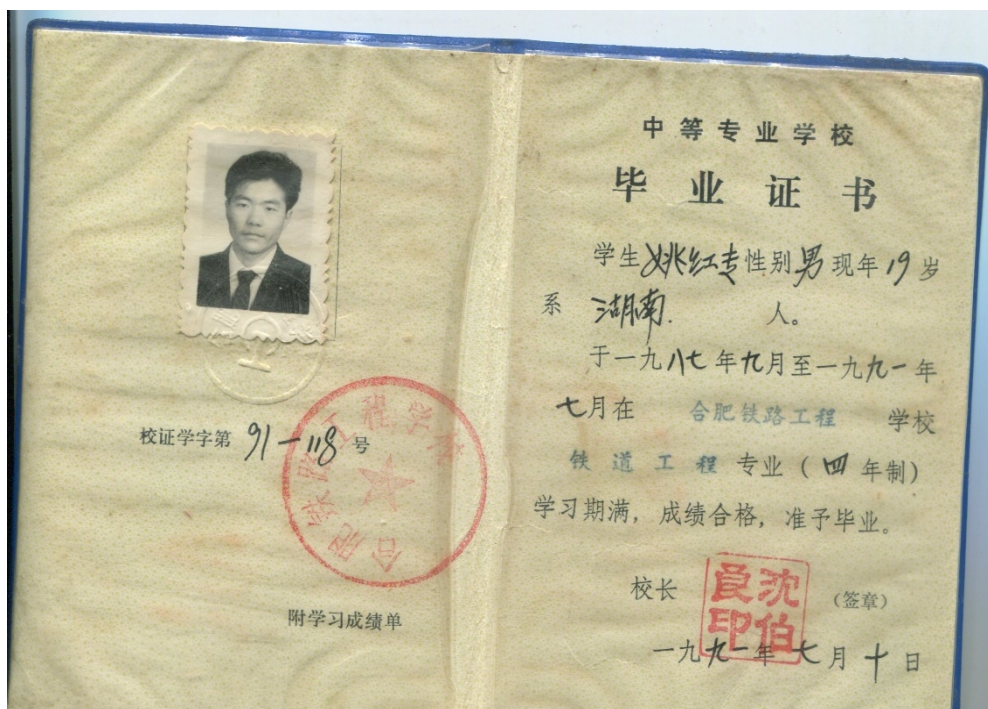 校证学字第 91-118 号
合肥铁路工程学校
附学习成绩单
中等专业学校
毕业证书
学生姚红专性别男现年19岁
系 湖南. 人。
于一九八七年九月至一九九一年
七月在 合肥铁路工程 学校
铁道工程专业(四年制)
学习期满,成绩合格,准予毕业。
校长 沈伯良印 (签章)
一九九一年七月十日